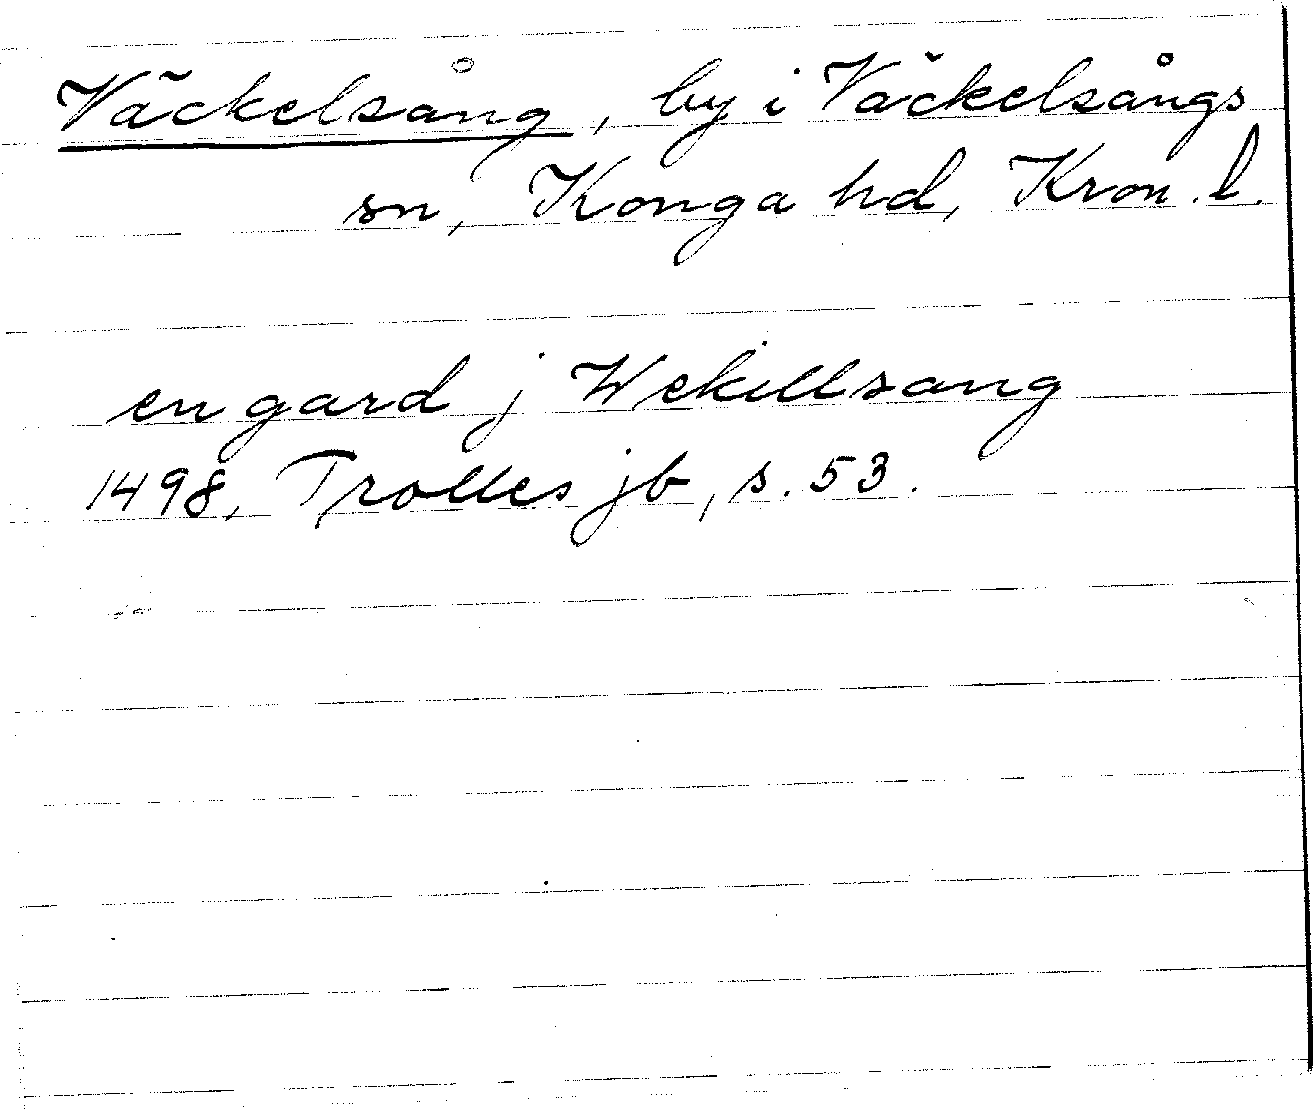 Väckelsång, by i Väckelsångs
sn, Konga hd, Kron. l.
en gard j Wekillsang
1498, Trolles jb, s. 53.